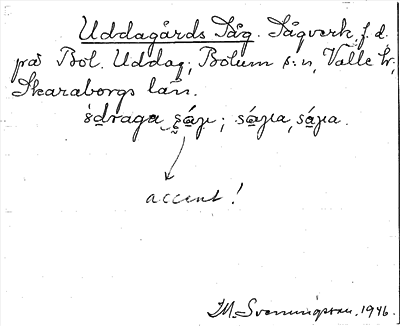 Uddagårds Såg. Sågverk, f. d.
på Bol. Uddag; Bolum s:n, Valle hr,
Skaraborgs län.
accent!
M. Svenningsson. 1946.